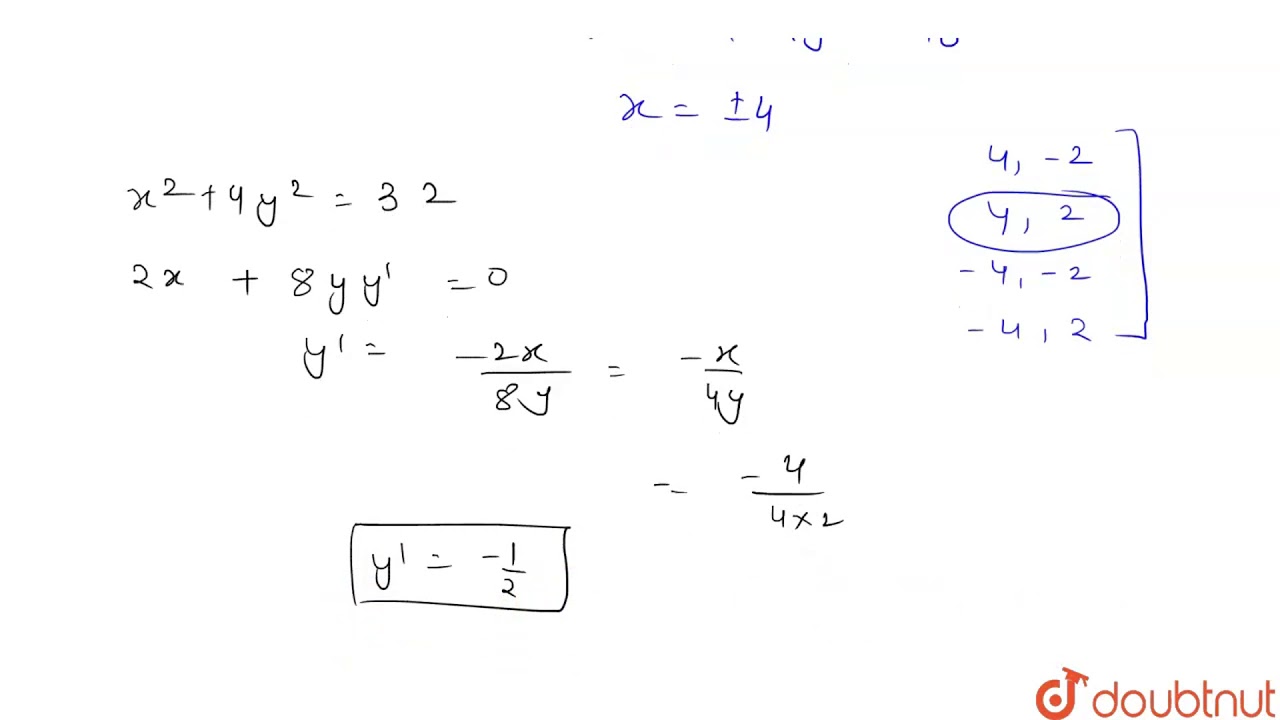 x = ±4
4, -2
4, 2
-4, -2
-4, 2
x² + 4y² = 32
2x + 8yy' = 0
y' = -2x/8y = -x/4y
= -4/4×2
y' = -1/2
doubtnut